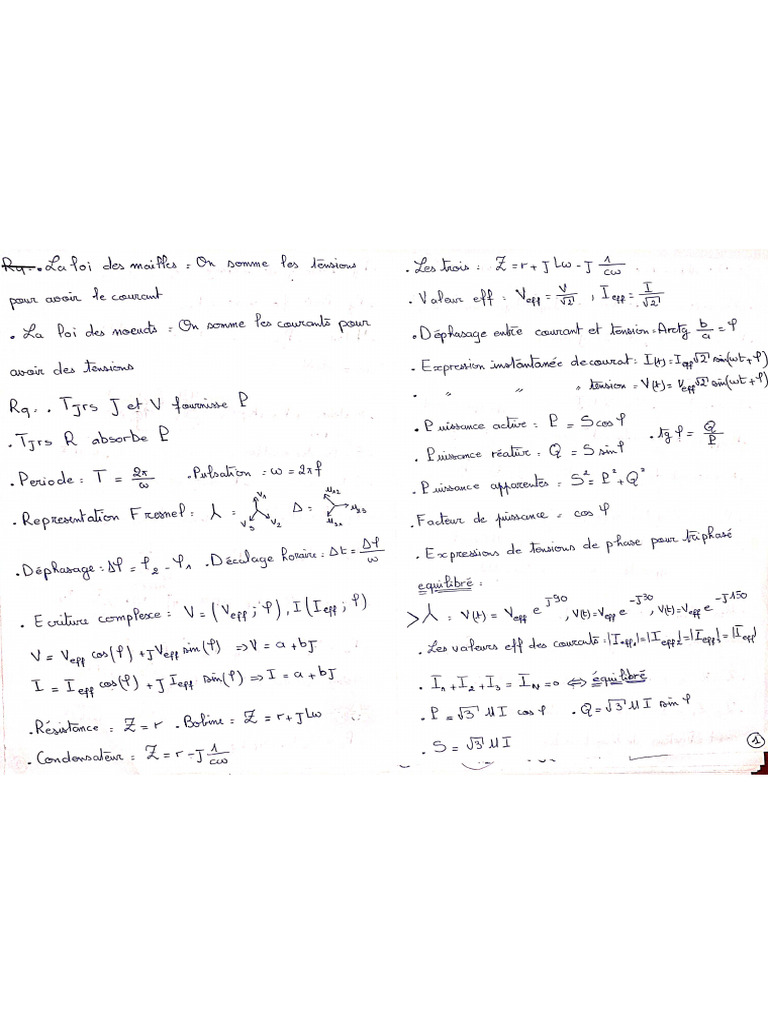 Rq . La loi des mailles : On somme les tensions
pour avoir le courant
. La loi des noeuds : On somme les courants pour
avoir des tensions
Rq : . Tjrs J et V fournisse P
. Tjrs R absorbe P
. Periode : T = 2π/ω . Pulsation : ω = 2πf
. Representation Fresnel : λ : V1 V2 V3 Δ :
. Déphasage : Δφ = φ2 - φ1 . Décalage horaire : Δt = Δφ/ω
. Ecriture complexe : V = (Veff ; φ), I (Ieff ; φ)
V = Veff cos(φ) + J Veff sin(φ) ⇒ V = a + bJ
I = Ieff cos(φ) + J Ieff sin(φ) ⇒ I = a + bJ
. Résistance : Z = r . Bobine : Z = r + J Lω
. Condensateur : Z = r - J 1/cω
. Les trois : Z = r + J Lω - J 1/cω
. Valeur eff : Veff = V/√2 , Ieff = I/√2
. Déphasage entre courant et tension : Arctg b/a = φ
. Expression instantanée de courat : I(t) = Ieff √2 sin(ωt + φ)
. " " " tension : V(t) = Veff √2 sin(ωt + φ)
. Puissance active : P = S cos φ
. tg φ = Q/P
. Puissance réative : Q = S sin φ
. Puissance apparentes : S² = P² + Q²
. Facteur de puissance : cos φ
. Expressions de tensions de phase pour triphasé
equilibré :
> λ : V(t) = Veff e^J90 , V(t) = Veff e^-J30 , V(t) = Veff e^-J150
. Les valeurs eff des courants : |Ieff1| = |Ieff2| = |Ieff3| = |Ieff|
. I1 + I2 + I3 = IN = 0 ⇔ équilibré
. P = √3 U I cos φ . Q = √3 U I sin φ
. S = √3 U I
1